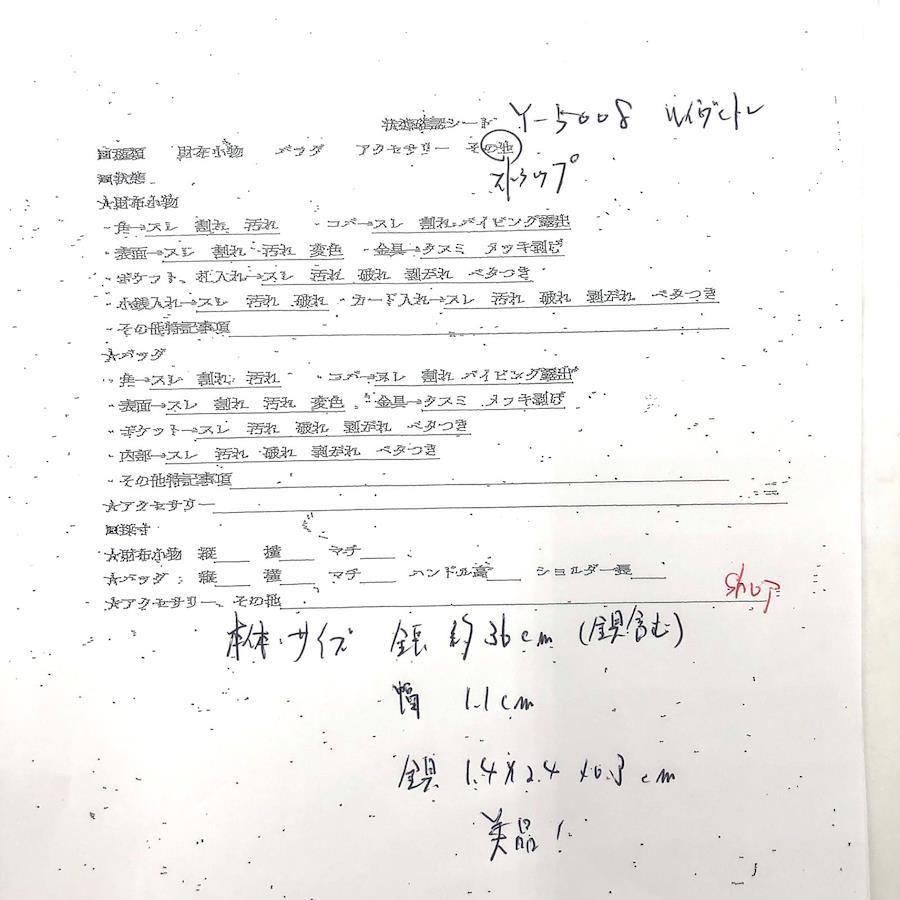 状態確認シート Y-5008 ルイヴィトン
■種類 財布小物 バッグ アクセサリー その他
ストラップ
■状態
★財布小物
・角→スレ 割れ 汚れ ・コバ→スレ 割れ パイピング露出
・表面→スレ 割れ 汚れ 変色 ・金具→クスミ メッキ剥げ
・ポケット、札入れ→スレ 汚れ 破れ 剥がれ ベタつき
・小銭入れ→スレ 汚れ 破れ ・カード入れ→スレ 汚れ 破れ 剥がれ ベタつき
・その他特記事項
★バッグ
・角→スレ 割れ 汚れ ・コバ→スレ 割れ パイピング露出
・表面→スレ 割れ 汚れ 変色 ・金具→クスミ メッキ剥げ
・ポケット→スレ 汚れ 破れ 剥がれ ベタつき
・内部→スレ 汚れ 破れ 剥がれ ベタつき
・その他特記事項
★アクセサリー
■採寸
★財布小物 縦 横 マチ
★バッグ 縦 横 マチ ハンドル高 ショルダー長
★アクセサリー、その他
shop
本体サイズ 全長 約36cm (金具含む)
幅 1.1cm
金具 1.4×2.4×0.3cm
美品!